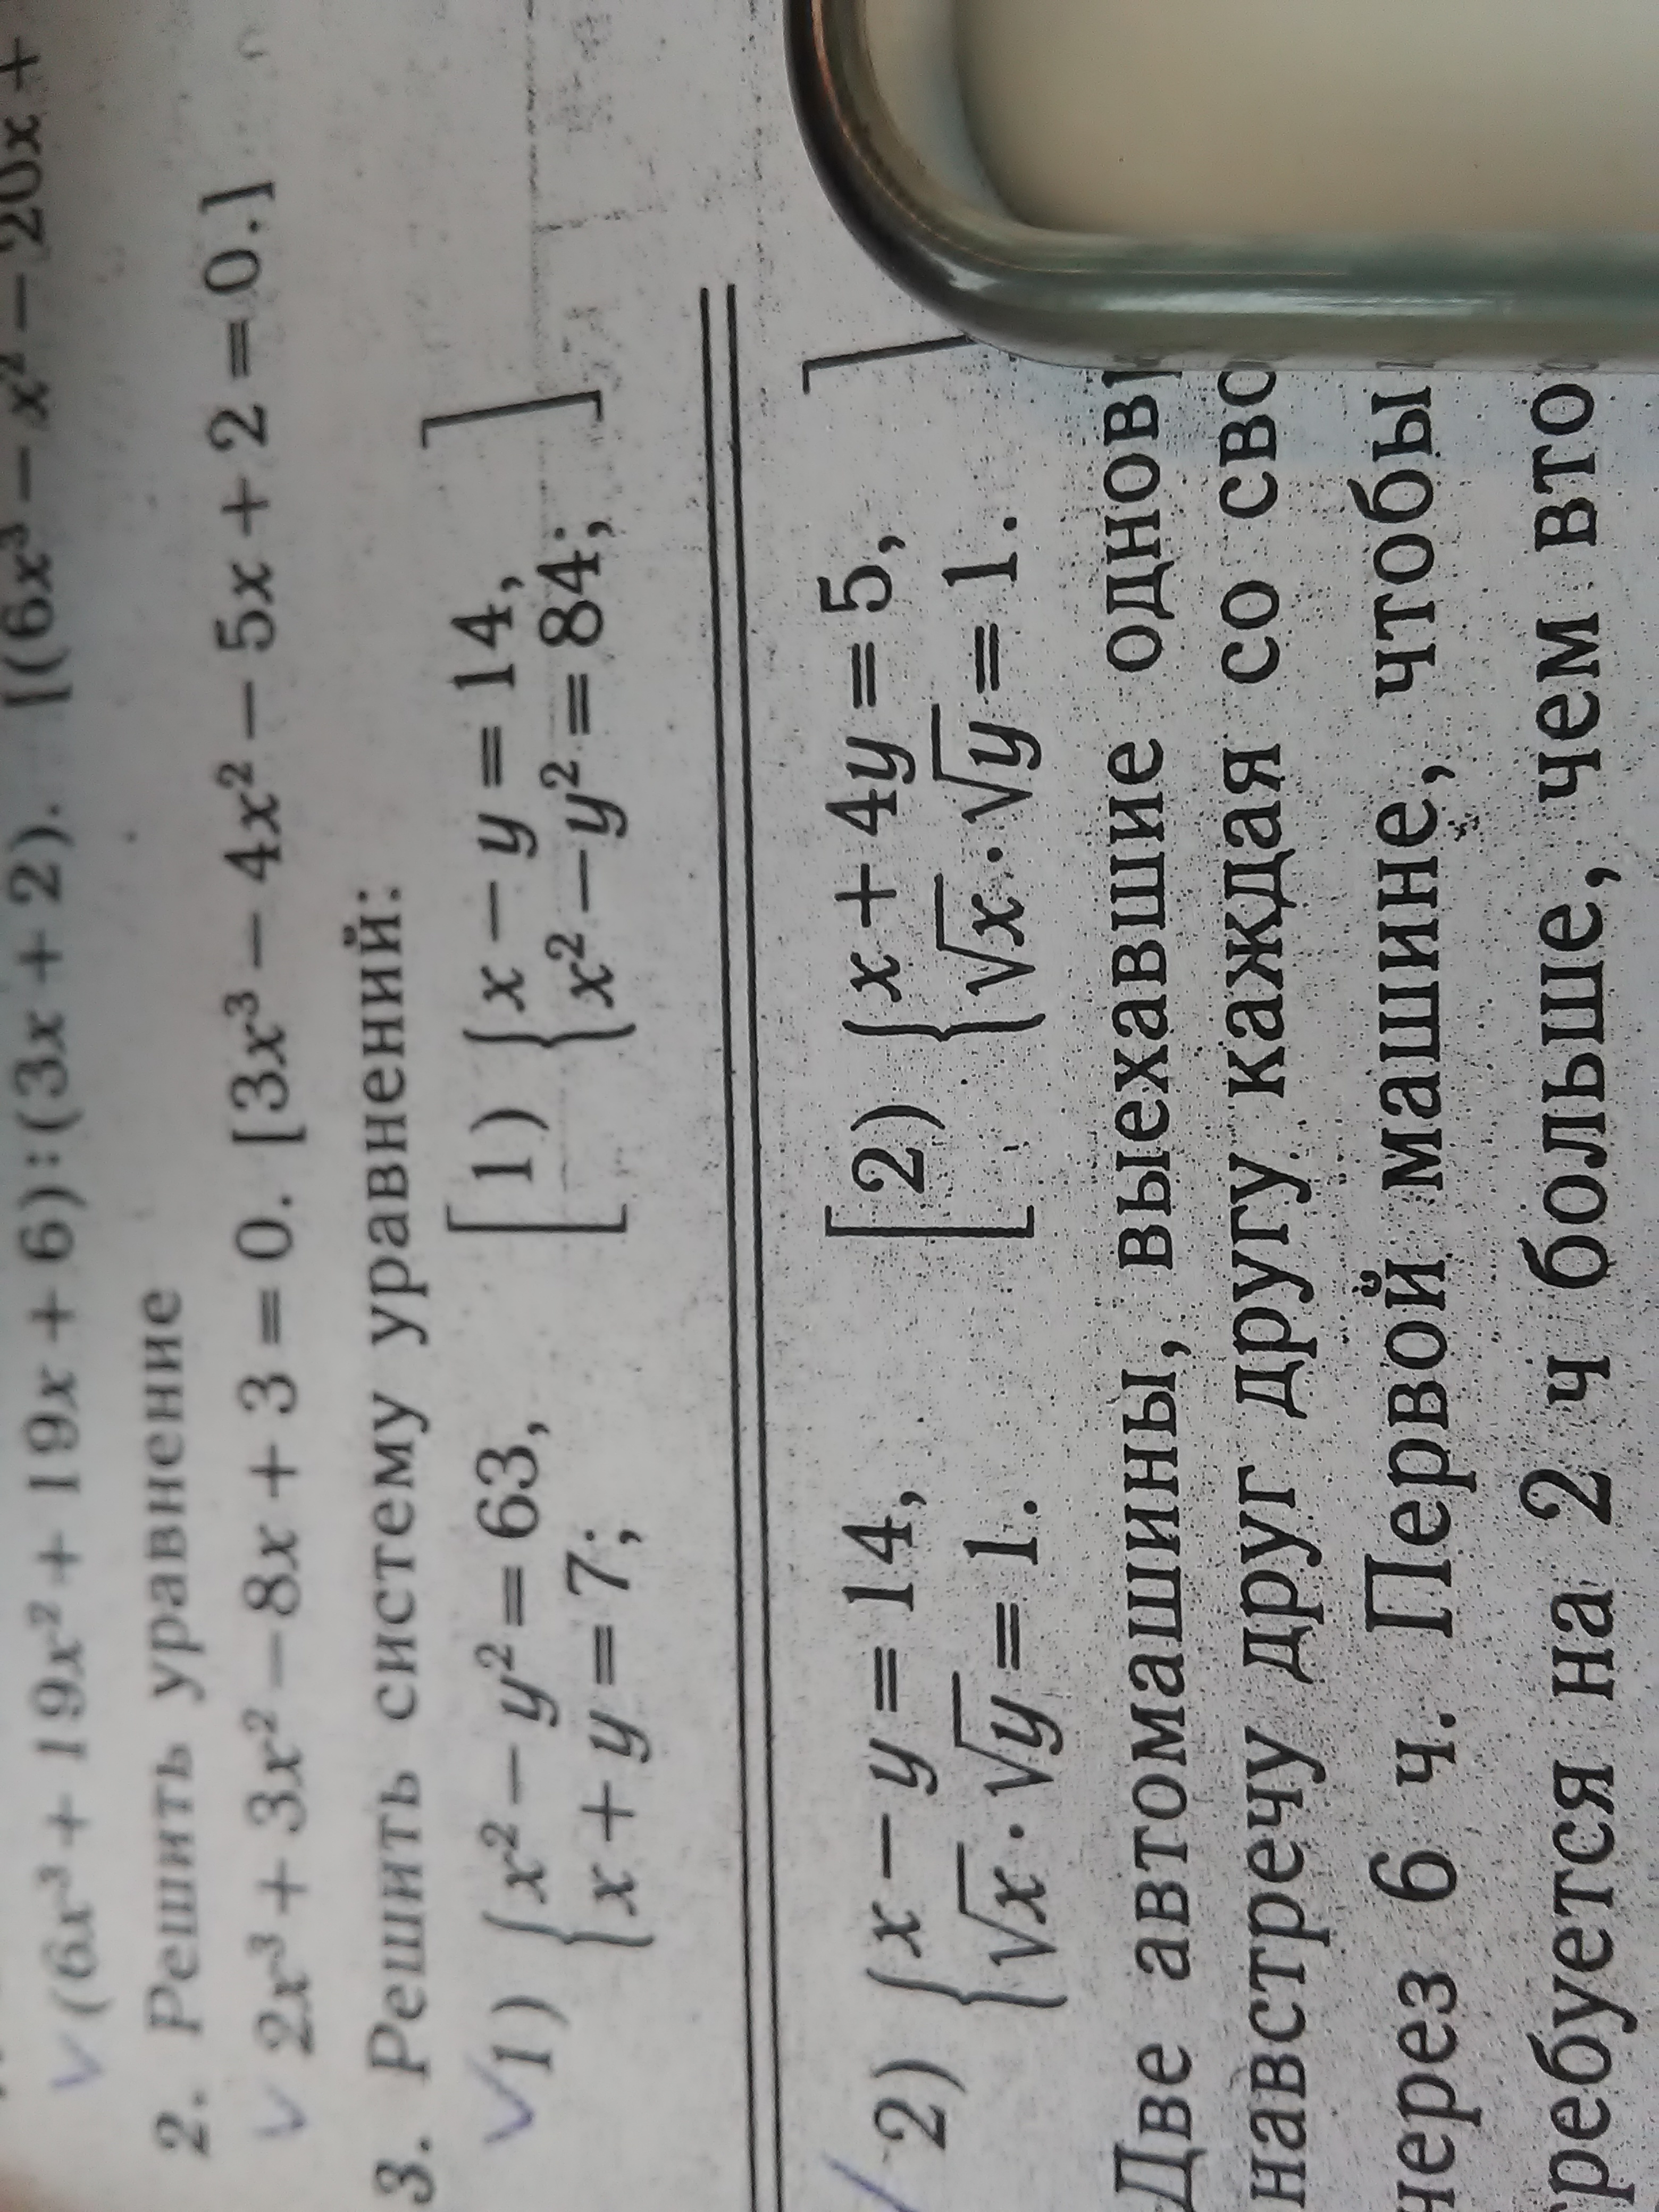 (6x³ + 19x² + 19x + 6) : (3x + 2). [(6x³ − x² − 20x +
2. Решить уравнение
2x³ + 3x² − 8x + 3 = 0. [3x³ − 4x² − 5x + 2 = 0.]
3. Решить систему уравнений:
1) { x² − y² = 63, [1) { x − y = 14,
x + y = 7; x² − y² = 84; ]
2) { x − y = 14, [2) { x + 4y = 5,
√x · √y = 1. √x · √y = 1. ]
Две автомашины, выехавшие
навстречу друг другу каждая со
через 6 ч. Первой машине, чтобы
на 2 ч больше, чем